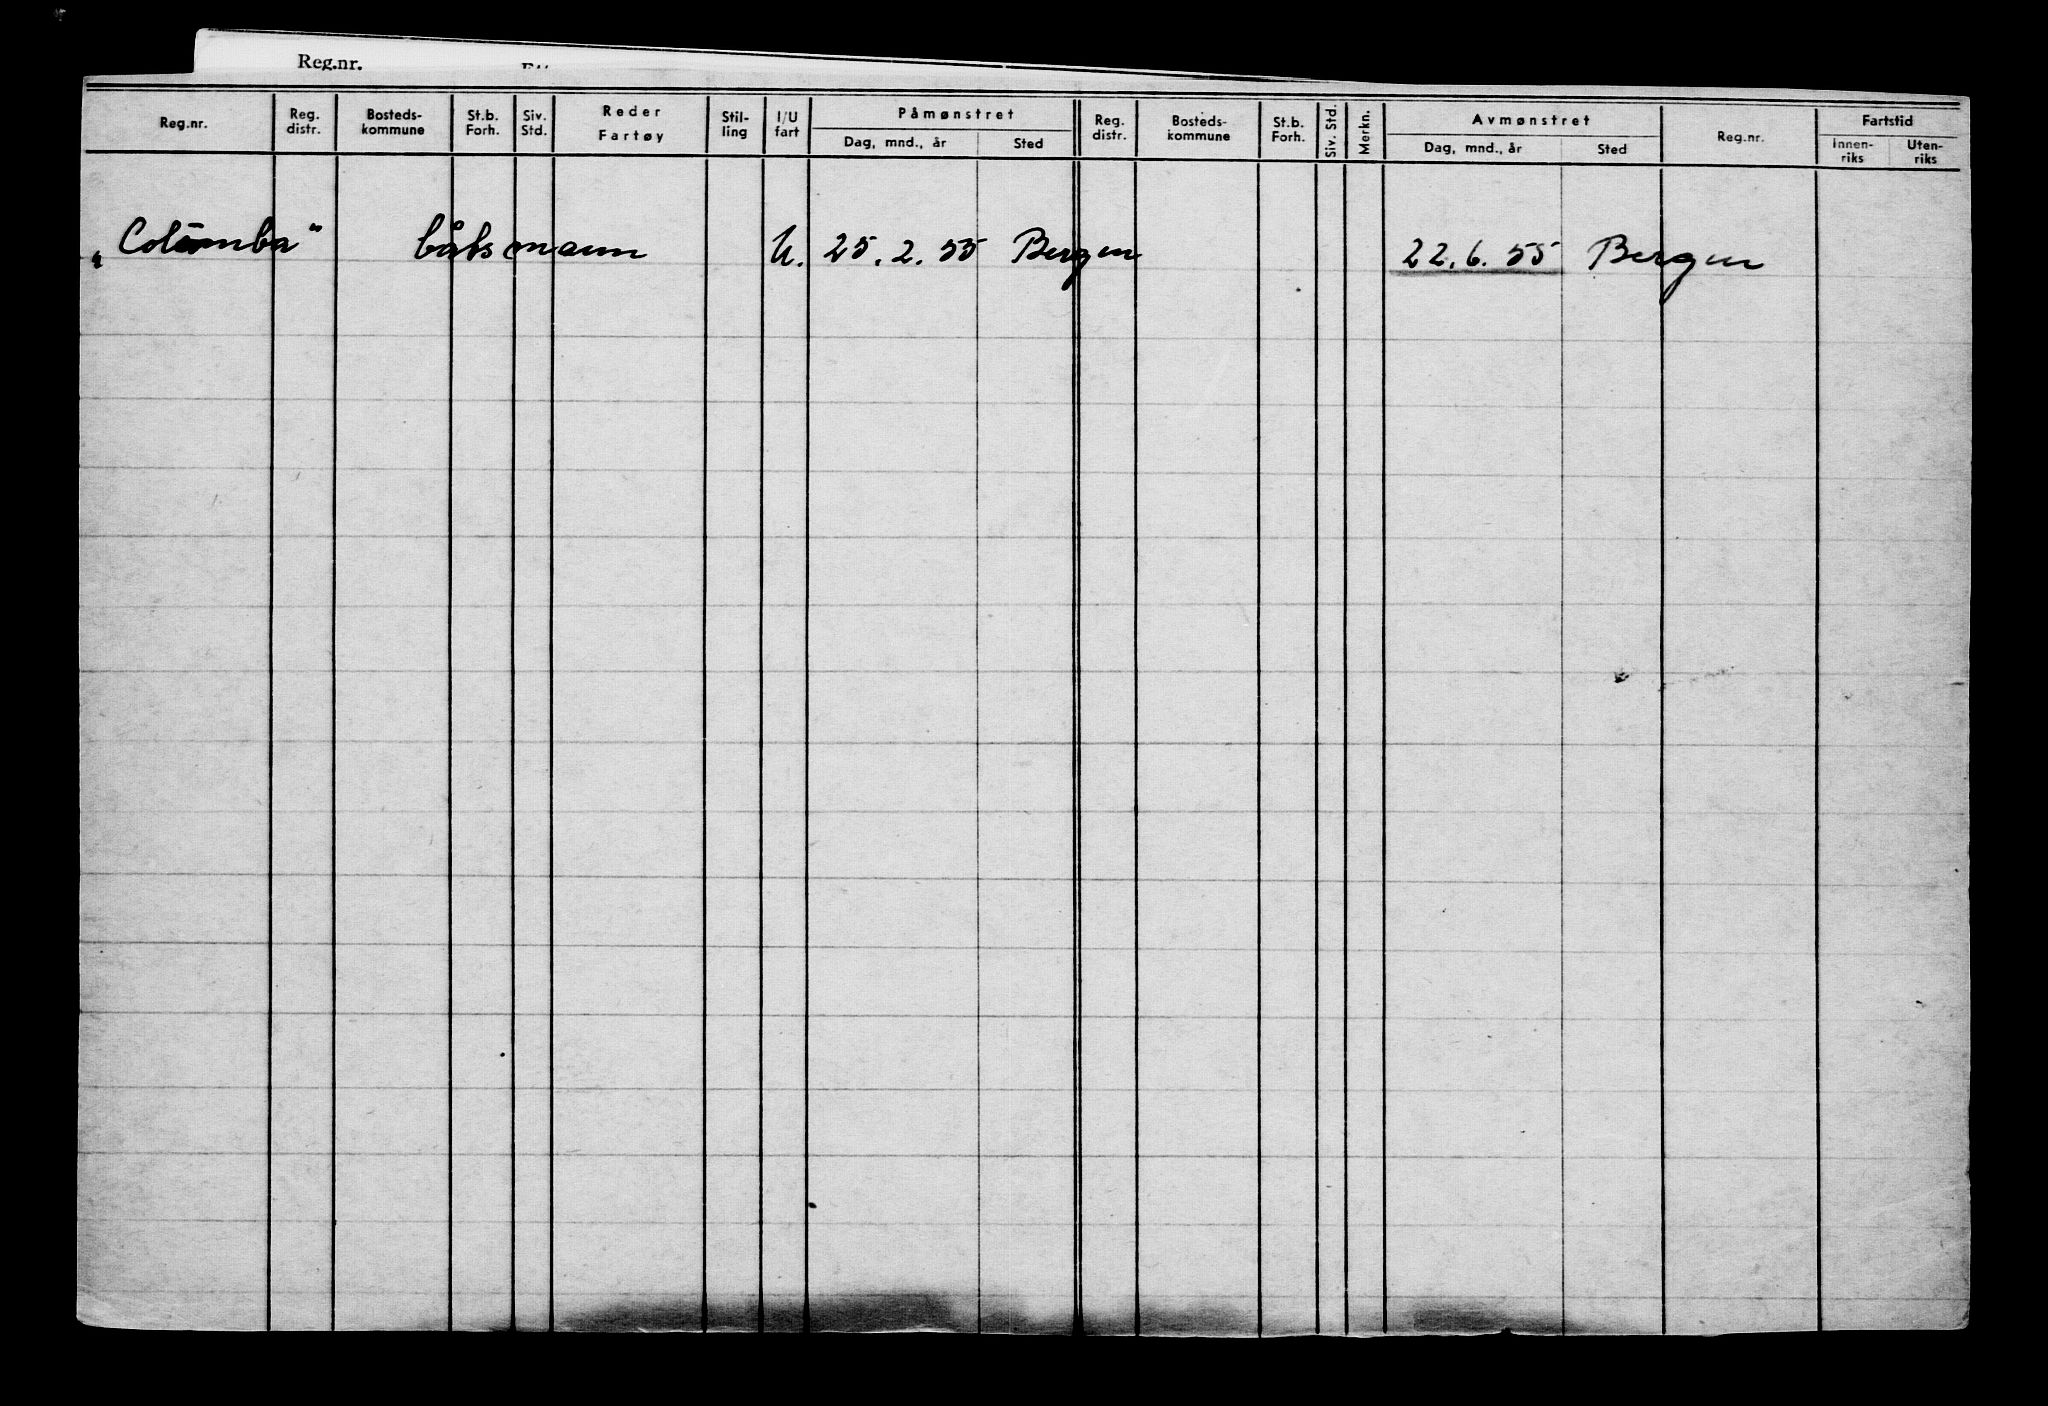 Reg.nr.
Reg.nr. Reg. distr. Bosteds-kommune St.b. Forh. Siv. Std. Reder Fartøy Stil-ling I/U fart Påmønstret Dag, mnd., år Sted Reg. distr. Bosteds-kommune St.b. Forh. Siv. Std. Merkn. Avmønstret Dag, mnd., år Sted Reg.nr. Fartstid Innen-riks Uten-riks
„Columba" båtsmann U. 25.2.55 Bergen 22.6.55 Bergen